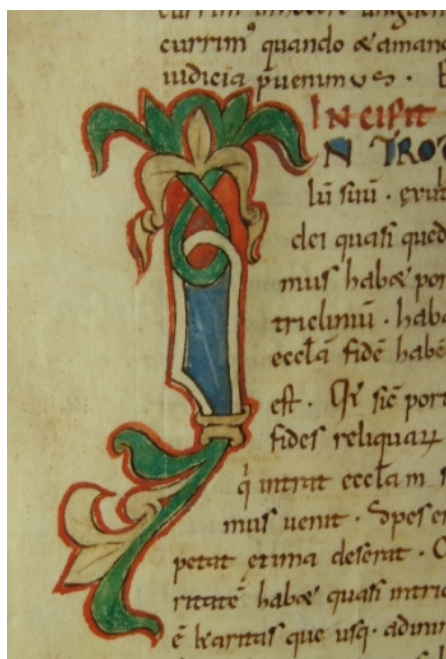 currim᷒ quando & amand
iudicia puenimus . E
INCIPIT
N TRO
lū suū . erut
dei quasi qued
mus habꝫ por
triclinium . hab
eccłā fidē habē
est . Qͥ sic port
fides reliquaꝝ
q̇ intrat eccłam s
mus uenit . Spes e
petat etima deserat . C
ritatē habꝫ quasi intric
ē karitas que usq; adim